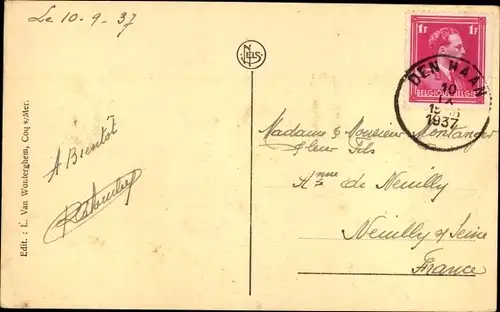 Le 10-9-37
NELS
1F 1F
BELGIQUE BELGIË
DEN HAAN
10
IX
1937
Madame & Monsieur Montanger
& leur Fils
A Bientôt
Ave de Neuilly
Neuilly s/ Seine
France
Edit. : L. Van Wonterghem, Coq s/Mer.